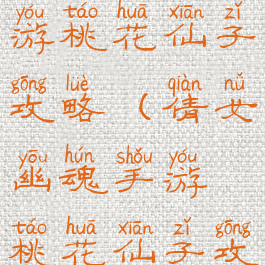 yóu táo huā xiān zǐ
游桃花仙子
gōng lüè qiàn nǚ
攻略(倩女
yōu hún shǒu yóu
幽魂手游
táo huā xiān zǐ gōng
桃花仙子攻